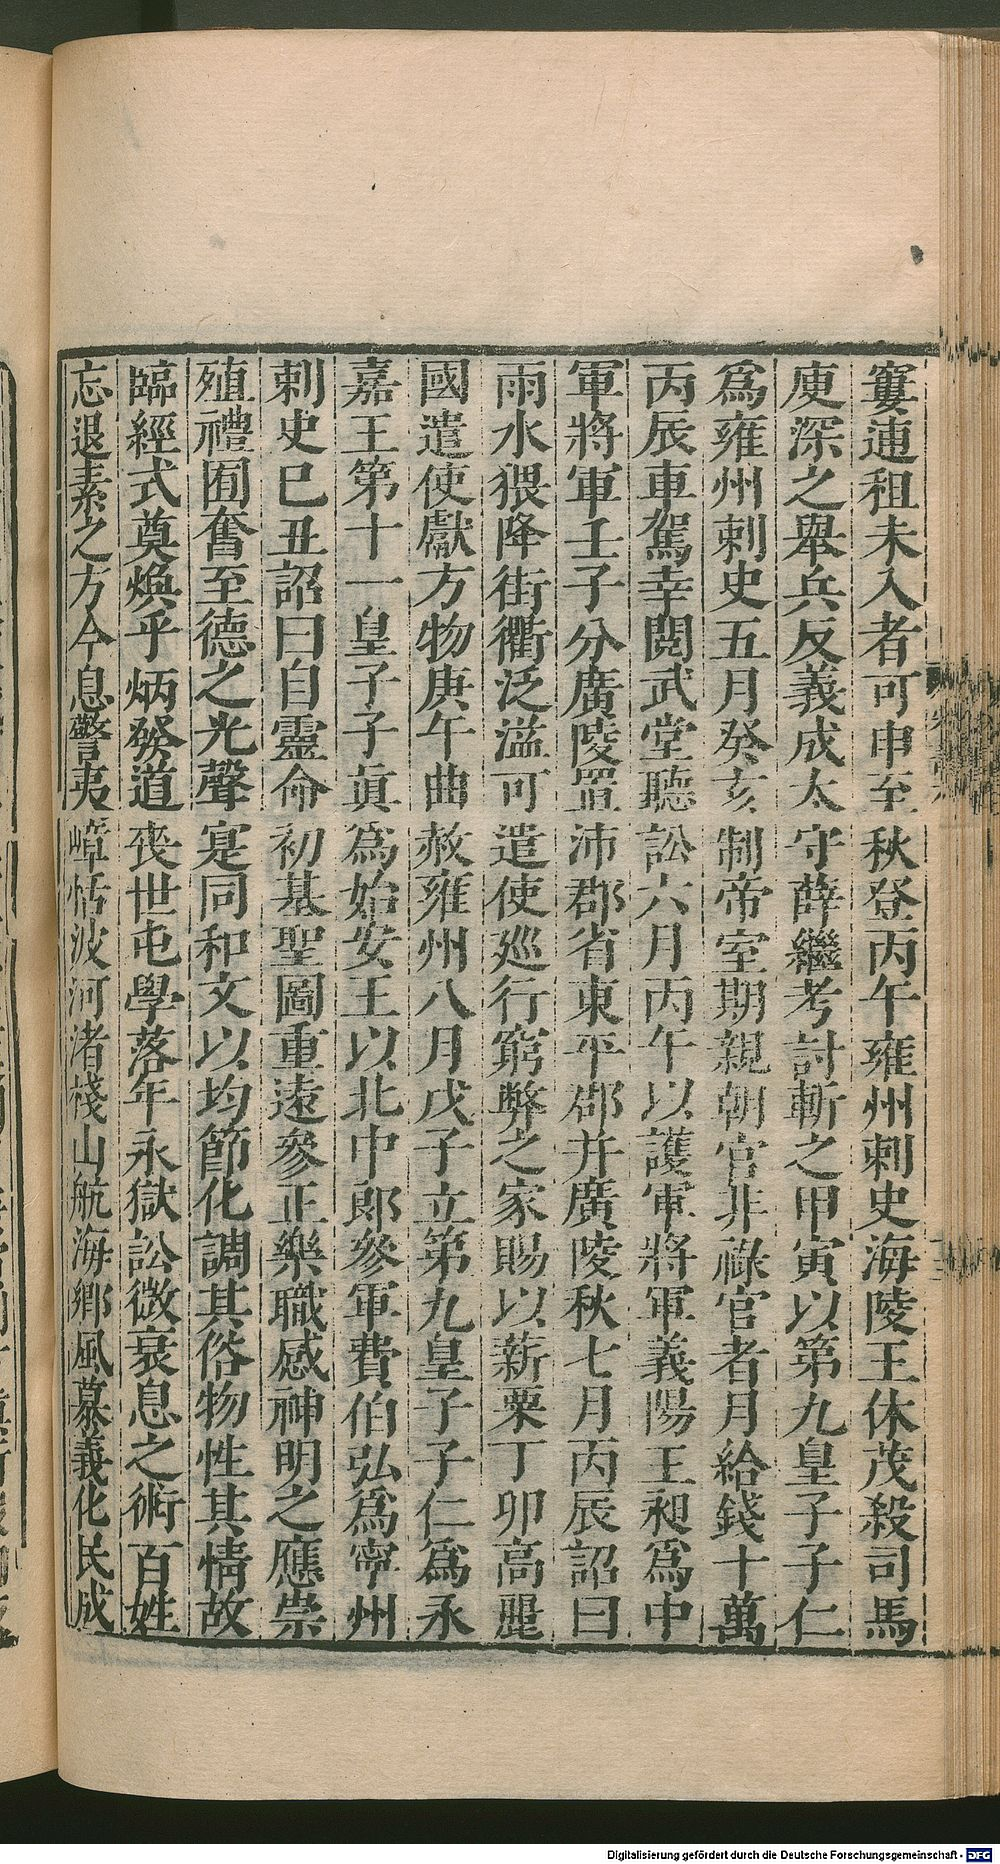 窶逋租未入者可申至秋登丙午雍州刺史海陵王休茂殺司馬
庾深之舉兵反義成太守薛繼考討斬之甲寅以第九皇子子仁
爲雍州刺史五月癸亥制帝室期親朝官非祿官者月給錢十萬
丙辰車駕幸閱武堂聽訟六月丙午以護軍將軍義陽王昶爲中
軍將軍壬子分廣陵置沛郡省東平郡并廣陵秋七月丙辰詔曰
雨水猥降街衢泛溢可遣使巡行窮弊之家賜以薪粟丁卯高麗
國遣使獻方物庚午曲赦雍州八月戊子立第九皇子子仁爲永
嘉王第十一皇子子眞爲始安王以北中郎參軍費伯弘爲寧州
刺史己丑詔曰自靈命初基聖圖重遠參正樂職感神明之應崇
殖禮囿奮至德之光聲寔同和文以均節化調其俗物性其情故
臨經式奠煥乎炳發道喪世屯學落年永獄訟微衰息之術百姓
忘退素之方今息警夷嶂恬波河渚棧山航海鄉風慕義化民成
Digitalisierung gefördert durch die Deutsche Forschungsgemeinschaft - DFG